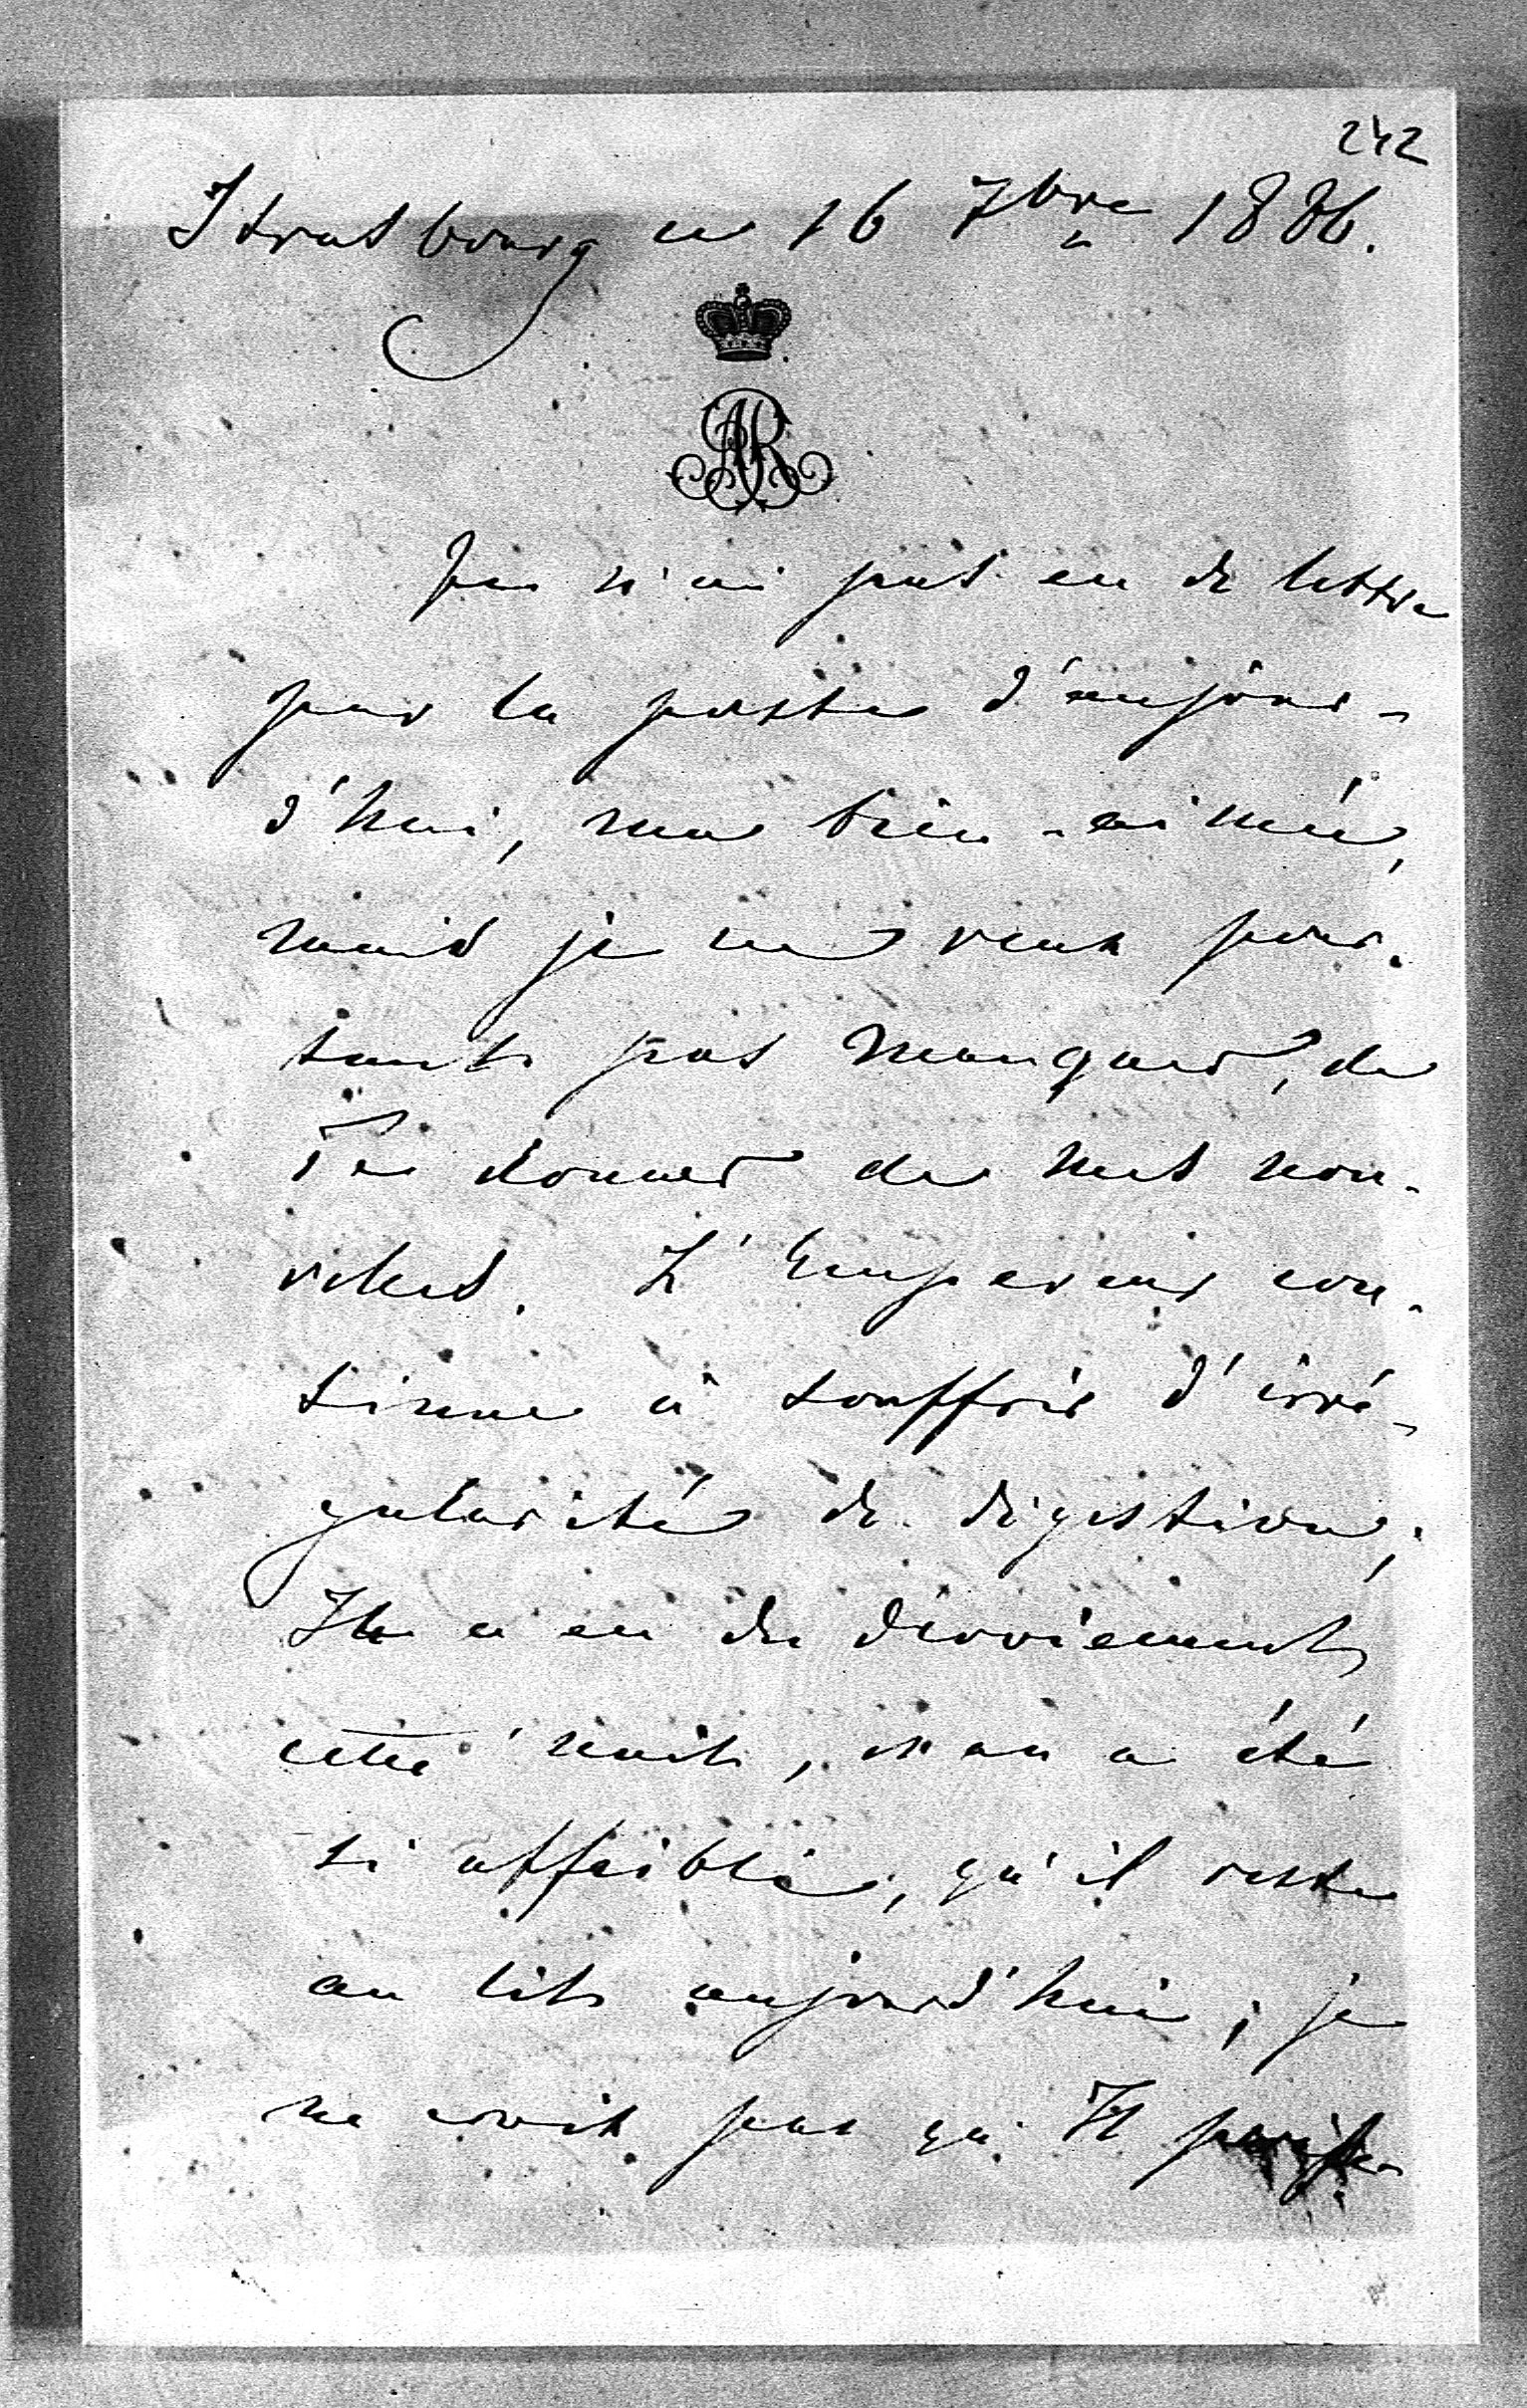 242
Strasbourg ce 16 7bre 1886.
AR
Je n'ai pas eu de lettre
par la poste d'aujour-
d'hui, ma bien-aimée,
mais je ne veux pour-
tant pas manquer, de
Te donner de mes nou-
velles. L'Empereur con-
tinue à souffrir d'irré-
gularités de digestion;
Il a eu du dévoiement
cette nuit, en a été
si affaibli, qu'il reste
au lit aujourd'hui; je
ne crois pas qu'Il puisse